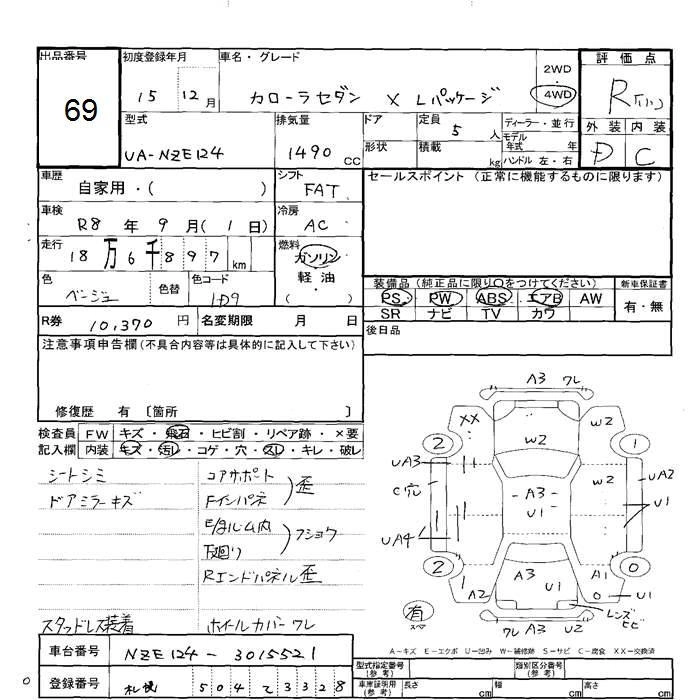 出品番号
69
初度登録年月
15 12月
車名・グレード
カローラセダン X Lパッケージ
2WD
4WD
評価点
R
外装 内装
D C
型式
UA-NZE124
排気量
1490 CC
ドア
形状
定員 5 人
積載 kg
ディーラー・並行
モデル年式 年
ハンドル 左・右
車歴
自家用・( )
シフト
FAT
セールスポイント (正常に機能するものに限ります)
車検
R8年 9月(1日)
冷房
AC
走行
18万6千897km
燃料
ガソリン
軽・油
( )
色
ベージュ
色替
色コード
1D9
装備品(純正品に限り○をつけてください)
PS PW ABS エアB AW
SR ナビ TV カワ
新車保証書
有・無
R券 10,370円
名変期限 月 日
後日品
注意事項申告欄(不具合内容等は具体的に記入して下さい)
修復歴 有 〔箇所 〕
検査員記入欄
FW キズ・飛石・ヒビ割・リペア跡・×要
内装 キズ・汚レ・コゲ・穴・スレ・キレ・破レ
シートシミ
ドアミラーキズ
スタッドレス装着
コアサポート
Fインパネ
歪
E/gルーム内
下廻り
フショク
Rエンドパネル歪
ホイールカバーワレ
A3 ワレ
XX
W2
W2
2
1
UA3
C穴
UA2
W2
A3
U1
U1
UA4
2
0
A2
A3
U1
A1
0
U1
レンズヒビ
有
スペア
ワレ A3 U2
A-キズ E-エクボ U-凹み W-補修跡 S-サビ C-腐食 XX-交換済
車台番号
NZE124-3015521
登録番号
札幌 504 て 3328
型式指定番号(参考)
類別区分番号(参考)
車庫証明用(参考)
長さ cm
幅 cm
高さ cm